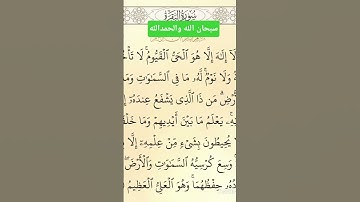 سُورَةُ الْبَقَرَةِ
سبحان الله والحمدالله
إِلَٰهَ إِلَّا هُوَ الْحَيُّ الْقَيُّومُ ۚ لَا
وَلَا نَوْمٌ ۚ لَّهُ مَا فِي السَّمَاوَاتِ
مَن ذَا الَّذِي يَشْفَعُ عِندَهُ
يَعْلَمُ مَا بَيْنَ أَيْدِيهِمْ وَمَا
يُحِيطُونَ بِشَيْءٍ مِّنْ عِلْمِهِ إِلَّا
وَسِعَ كُرْسِيُّهُ السَّمَاوَاتِ وَالْأَرْضَ
حِفْظُهُمَا ۚ وَهُوَ الْعَلِيُّ الْعَظِيمُ